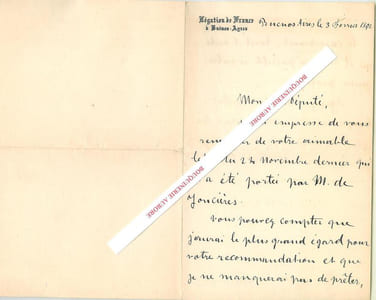 Légation de France
à Buenos-Ayres
Buenos Aires le 3 Février
Mon Député,
empresse de vous
de votre aimable
du 24 Novembre dernier qui
a été portée par M. de
Joncières.
Vous pouvez compter que
j'aurai le plus grand égard pour
votre recommandation et que
je ne manquerai pas de prêter,
BOUQUINERIE AURORE
BOUQUINERIE AURORE